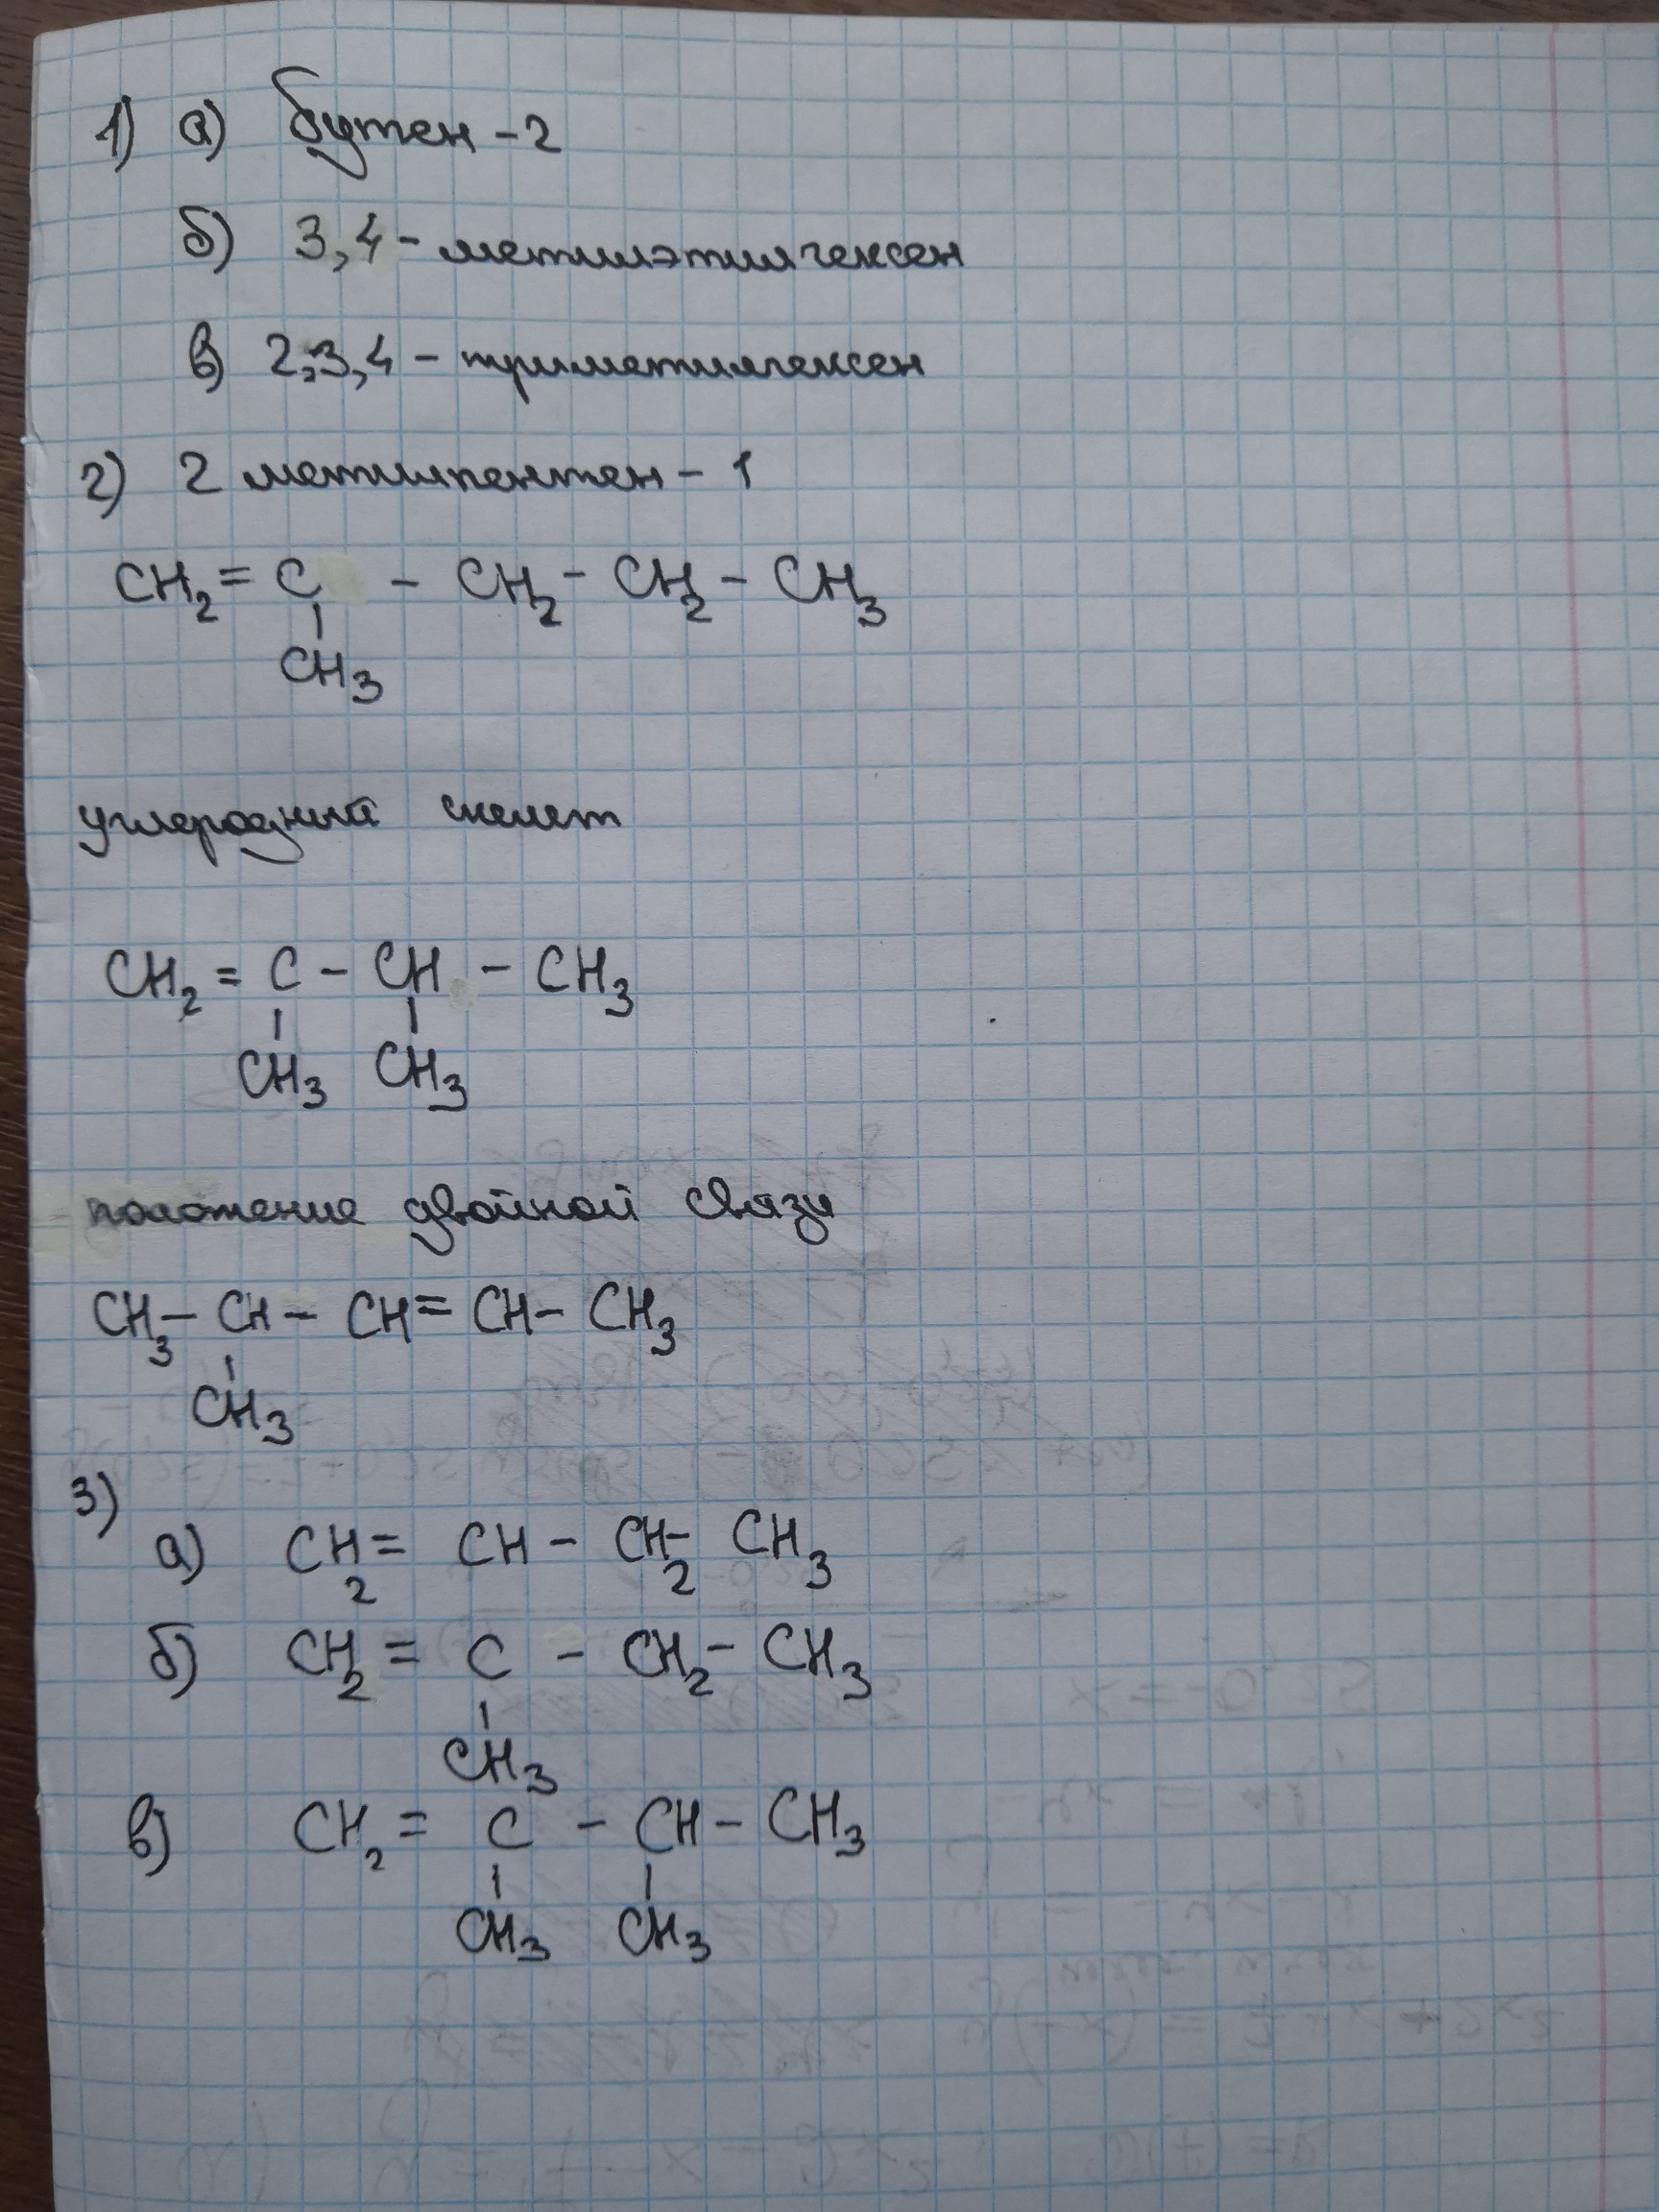 1) а) бутен - 2
б) 3,4 - метилэтилгексен
в) 2,3,4 - триметилгексен
2) 2 метилпентен - 1
CH2 = C - CH2 - CH2 - CH3
CH3
углеродный скелет
CH2 = C - CH - CH3
CH3 CH3
положение двойной связи
CH3 - CH - CH = CH - CH3
CH3
3)
а) CH2 = CH - CH2 - CH3
б) CH2 = C - CH2 - CH3
CH3
в) CH2 = C - CH - CH3
CH3 CH3